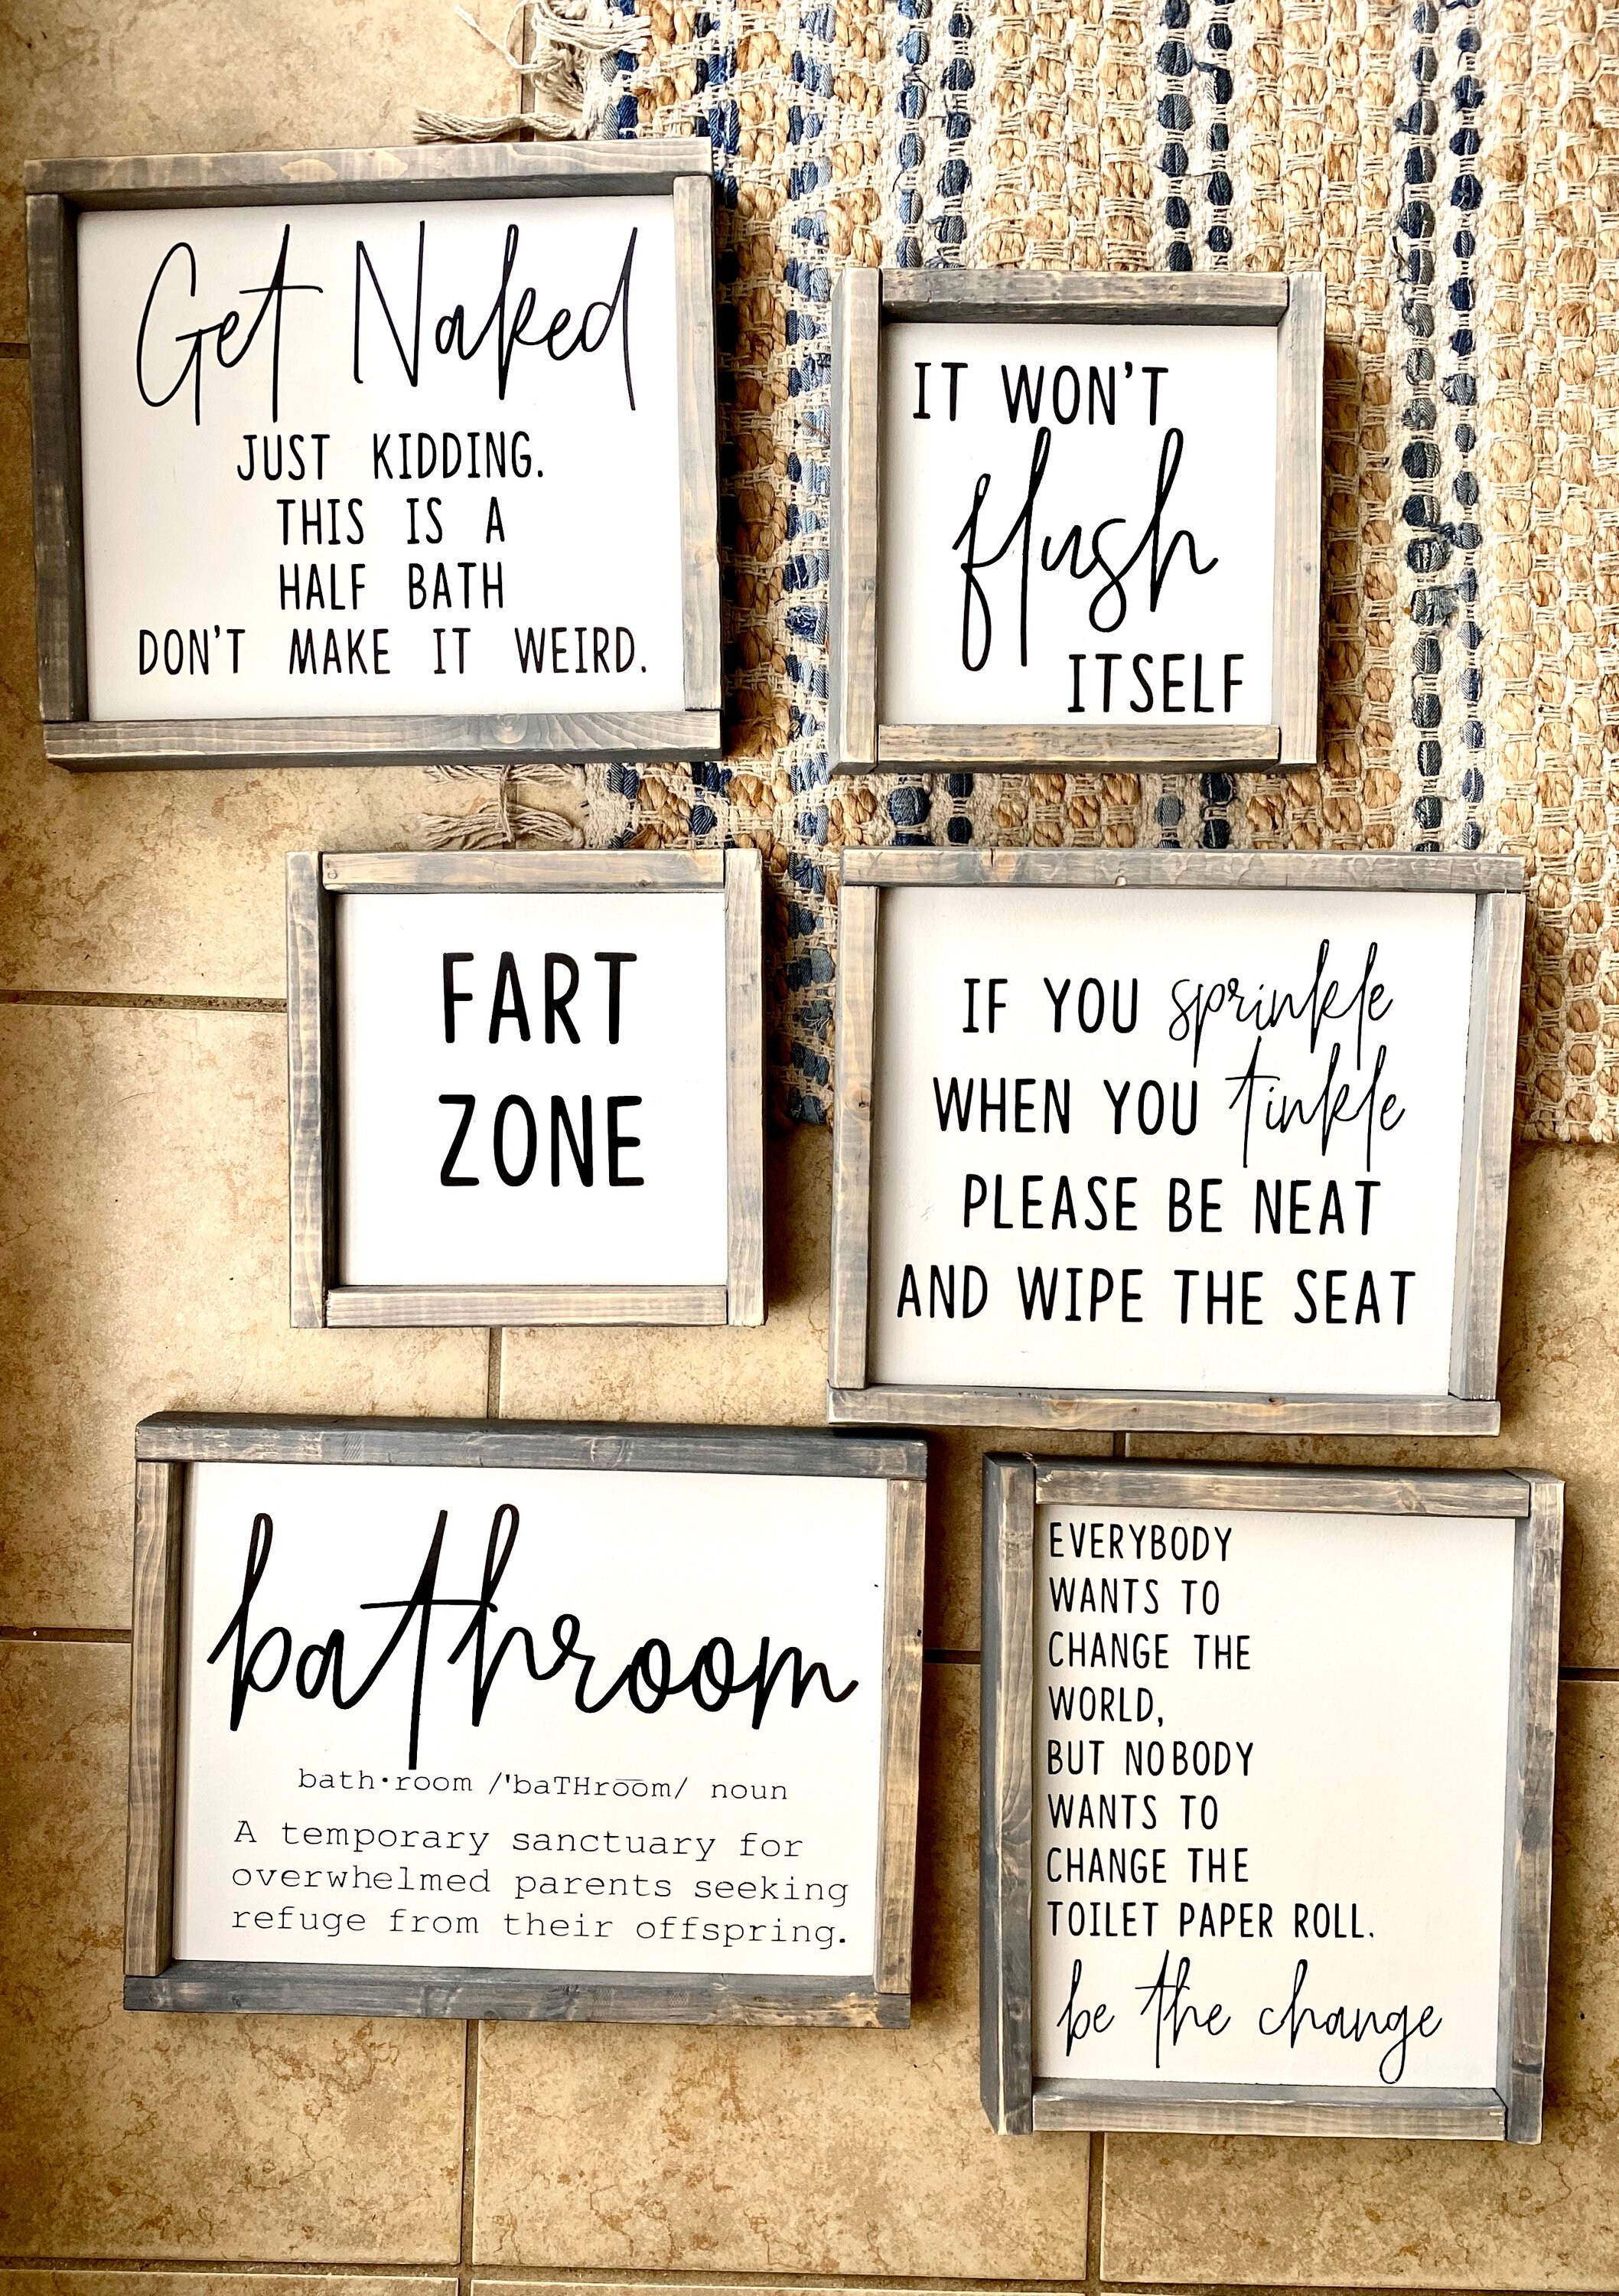 Get Naked
JUST KIDDING.
THIS IS A
HALF BATH
DON'T MAKE IT WEIRD.
IT WON'T
flush
ITSELF
FART
ZONE
IF YOU sprinkle
WHEN YOU tinkle
PLEASE BE NEAT
AND WIPE THE SEAT
bathroom
bath·room /'baTHro͞om/ noun
A temporary sanctuary for
overwhelmed parents seeking
refuge from their offspring.
EVERYBODY
WANTS TO
CHANGE THE
WORLD,
BUT NOBODY
WANTS TO
CHANGE THE
TOILET PAPER ROLL.
be the change